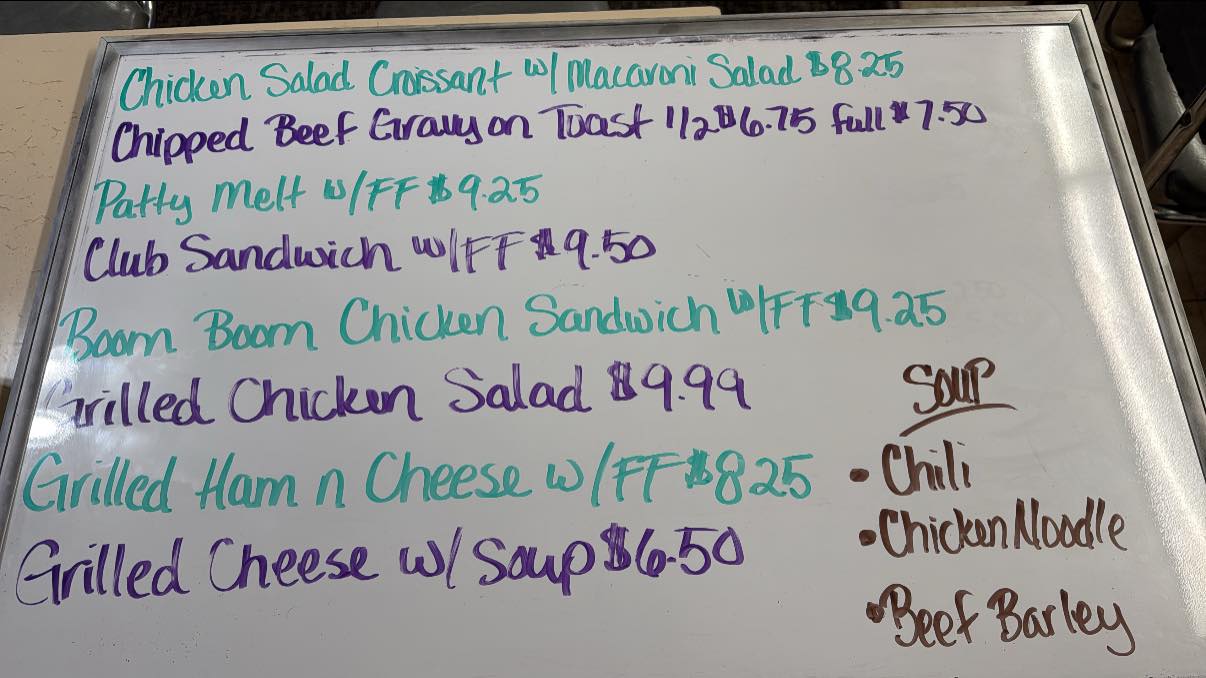 Chicken Salad Croissant w/ Macaroni Salad $8.25
Chipped Beef Gravy on Toast 1/2 $6.75 full $7.50
Patty Melt w/FF $9.25
Club Sandwich w/FF $9.50
Boom Boom Chicken Sandwich w/FF $9.25
Grilled Chicken Salad $9.99
Grilled Ham n Cheese w/FF $8.25
Grilled Cheese w/ Soup $6.50
Soup
• Chili
• Chicken Noodle
• Beef Barley